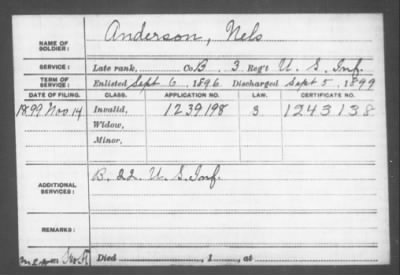 NAME OF SOLDIER: Anderson, Nels
SERVICE: Late rank, Co. B, 3 Reg't U. S. Inf.
TERM OF SERVICE: Enlisted Sept 6, 1896. Discharged Sept 5, 1899
DATE OF FILING. CLASS. APPLICATION NO. LAW. CERTIFICATE NO.
1899 Nov 14 Invalid, 1239198 3 1243138
Widow,
Minor,
ADDITIONAL SERVICES: B. 22. U. S. Inf.
REMARKS:
Died , 1 , at